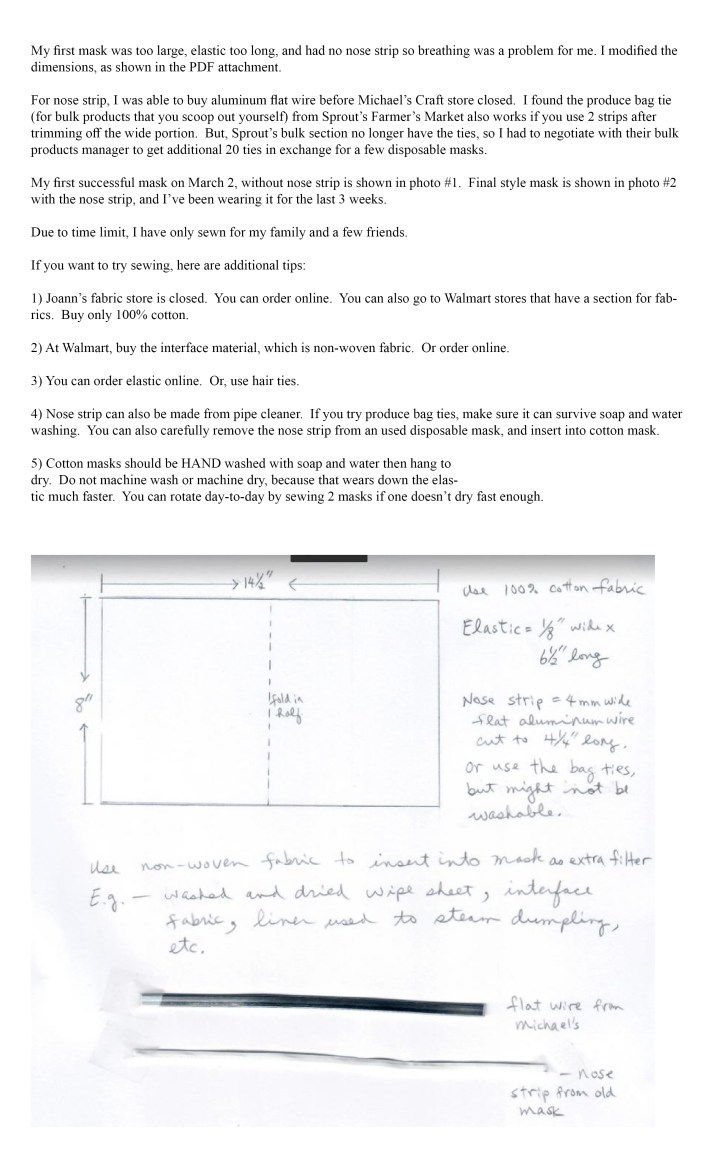 My first mask was too large, elastic too long, and had no nose strip so breathing was a problem for me. I modified the
dimensions, as shown in the PDF attachment.
For nose strip, I was able to buy aluminum flat wire before Michael's Craft store closed.  I found the produce bag tie
(for bulk products that you scoop out yourself) from Sprout's Farmer's Market also works if you use 2 strips after
trimming off the wide portion.  But, Sprout's bulk section no longer have the ties, so I had to negotiate with their bulk
products manager to get additional 20 ties in exchange for a few disposable masks.
My first successful mask on March 2, without nose strip is shown in photo #1.  Final style mask is shown in photo #2
with the nose strip, and I've been wearing it for the last 3 weeks.
Due to time limit, I have only sewn for my family and a few friends.
If you want to try sewing, here are additional tips:
1) Joann's fabric store is closed.  You can order online.  You can also go to Walmart stores that have a section for fab-
rics.  Buy only 100% cotton.
2) At Walmart, buy the interface material, which is non-woven fabric.  Or order online.
3) You can order elastic online.  Or, use hair ties.
4) Nose strip can also be made from pipe cleaner.  If you try produce bag ties, make sure it can survive soap and water
washing.  You can also carefully remove the nose strip from an used disposable mask, and insert into cotton mask.
5) Cotton masks should be HAND washed with soap and water then hang to
dry.  Do not machine wash or machine dry, because that wears down the elas-
tic much faster.  You can rotate day-to-day by sewing 2 masks if one doesn't dry fast enough.
14½"
8"
fold in
half
Use 100% cotton fabric
Elastic = ⅛" wide x
6½" long
Nose strip = 4mm wide
flat aluminum wire
cut to 4¼" long.
or use the bag ties,
but might not be
washable.
Use non-woven fabric to insert into mask as extra filter
E.g. — washed and dried wipe sheet, interface
fabric, liner used to steam dumpling,
etc.
flat wire from
Michael's
— nose
strip from old
mask